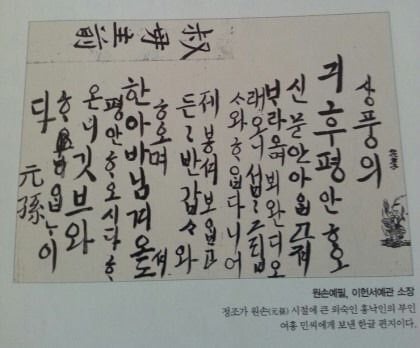 叔母主前
상풍의
긔후 평안ᄒᆞ오
신 문안 아ᄋᆞᆸ고져
ᄇᆞ라오며 뵈완디 오
래오니 섭〃 그립
ᄉᆞ와 ᄒᆞᄋᆞᆸ다니 어
제 봉셔 보ᄋᆞᆸ고
든〃 반갑ᄉᆞ와
ᄒᆞ오며
한아바님 겨오셔도
평안ᄒᆞ오시다 ᄒᆞ
온니 깃브와
ᄒᆞᄋᆞᆸᄂᆞ이
다
元孫
원손예필, 이헌서예관 소장
정조가 원손(元孫) 시절에 큰 외숙인 홍낙인의 부인
여흥 민씨에게 보낸 한글 편지이다.